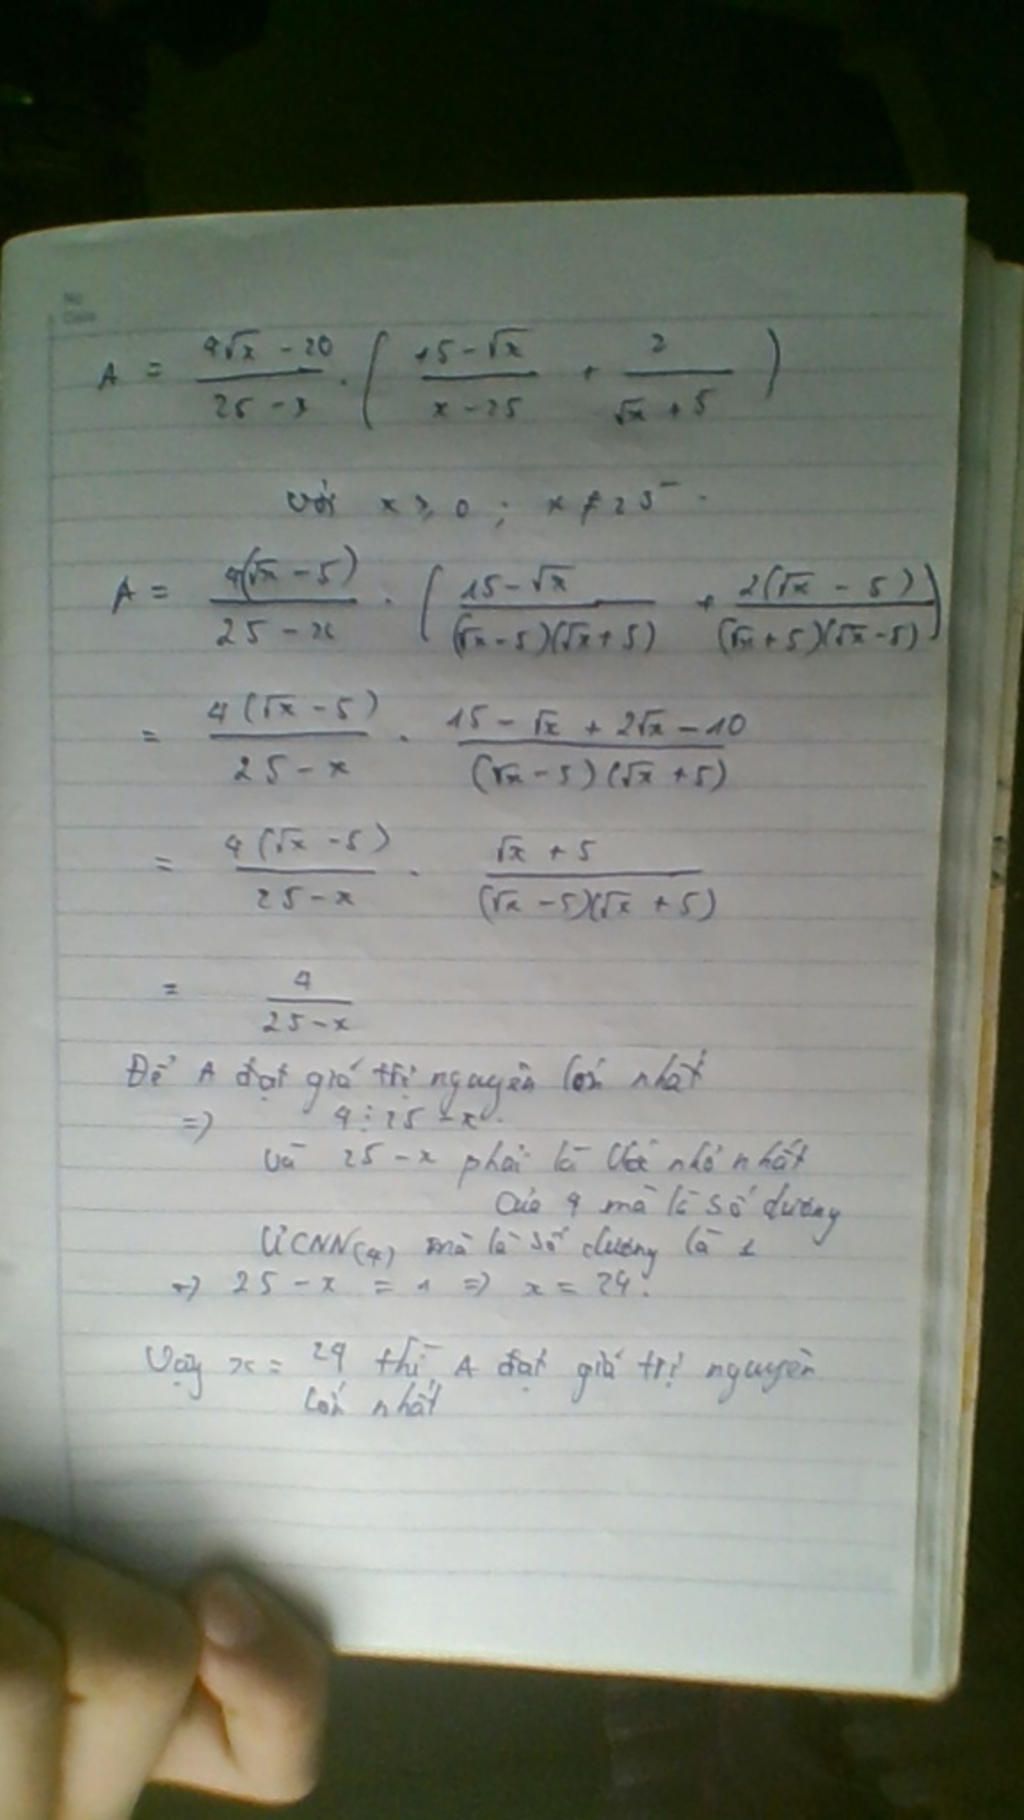 No
Date
A = (4√x - 20)/(25 - x) . ( (15 - √x)/(x - 25) + 2/(√x + 5) )
Với x ≥ 0 ; x ≠ 25 .
A = 4(√x - 5)/(25 - x) . ( (15 - √x)/((√x - 5)(√x + 5)) + 2(√x - 5)/((√x + 5)(√x - 5)) )
= 4(√x - 5)/(25 - x) . (15 - √x + 2√x - 10)/((√x - 5)(√x + 5))
= 4(√x - 5)/(25 - x) . (√x + 5)/((√x - 5)(√x + 5))
= 4/(25 - x)
Để A đạt giá trị nguyên lớn nhất
=> 4 ⋮ 25 - x .
và 25 - x phải là Ước nhỏ nhất
của 4 mà là số dương
ƯCNN(4) mà là số dương là 1
=> 25 - x = 1 => x = 24 .
Vậy x = 24 thì A đạt giá trị nguyên
lớn nhất